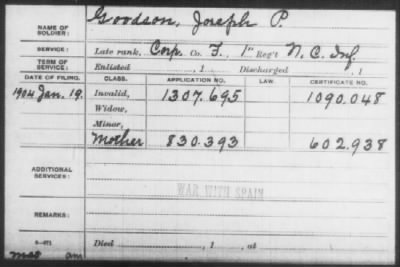 NAME OF SOLDIER: Goodson, Joseph P.
SERVICE: Late rank, Corp. Co. F., 1" Reg't N. C. Inf.
TERM OF SERVICE: Enlisted , 1 Discharged , 1
DATE OF FILING. CLASS. APPLICATION NO. LAW. CERTIFICATE NO.
1904 Jan. 19. Invalid, 1307.695 1090.048
Widow,
Minor,
Mother 830.393 602.938
ADDITIONAL SERVICES:
WAR WITH SPAIN
REMARKS:
Died , 1 , at